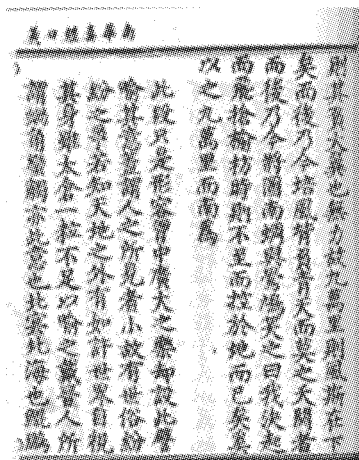 南華真經口義
則其負大翼也無力故九萬里則風斯在下
矣而後乃今培風背負青天而莫之夭閼者
而後乃今將圖南蜩與鷽鳩笑之曰我決起
而飛搶榆枋時則不至而控於地而已矣奚
以之九萬里而南爲
此段只是形容胷中廣大之樂却設此譬
喻其意蓋謂人之所見者小故有世俗紛
紛之爭若知天地之外有如許世界自視
其身雖太倉一粒不足以喻之戴晉人所
謂蝸角蠻觸亦此意也北冥北海也鯤鵬